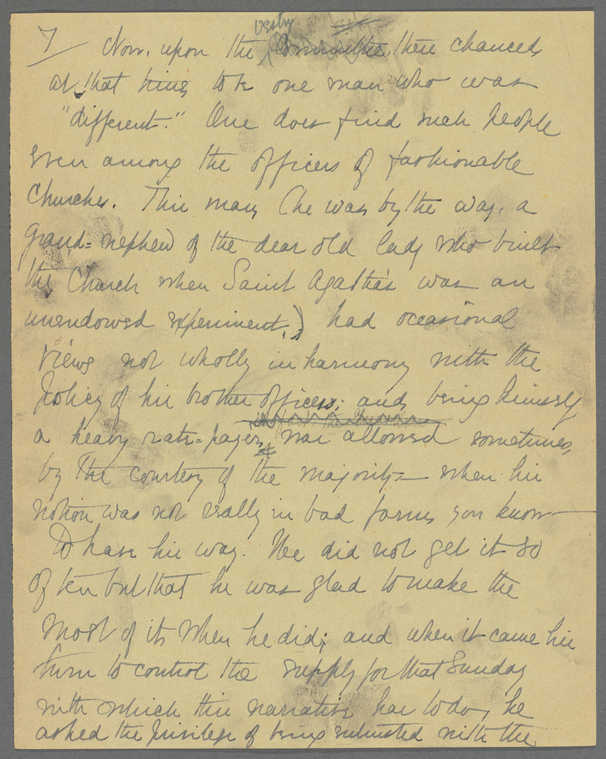 7/ Now, upon the vestry Committee, there chanced
at that time, to be one man who was
"different." One does find such people
even among the officers of fashionable
Churches. This man, (he was by the way, a
grand-nephew of the dear old lady who built
the Church when Saint Agatha's was an
unendowed experiment,) had occasional
views not wholly in harmony with the
policy of his brother officers; and, being himself
a heavy rate-payer, was allowed sometimes,
by the courtesy of the majority— when his
notion was not really in bad form, you know—
to have his way. He did not get it so
often but that he was glad to make the
most of it, when he did; and when it came his
turn to control the supply for that Sunday
with which this narrative has to do, he
asked the privilege of being entrusted with the